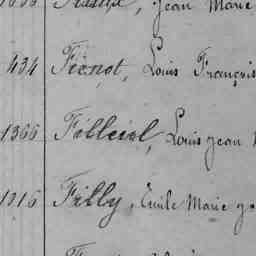 Jean Marie
434 Fienot, Louis François
1366 Filleiol, Louis Jean
1116 Filly, Emile Marie